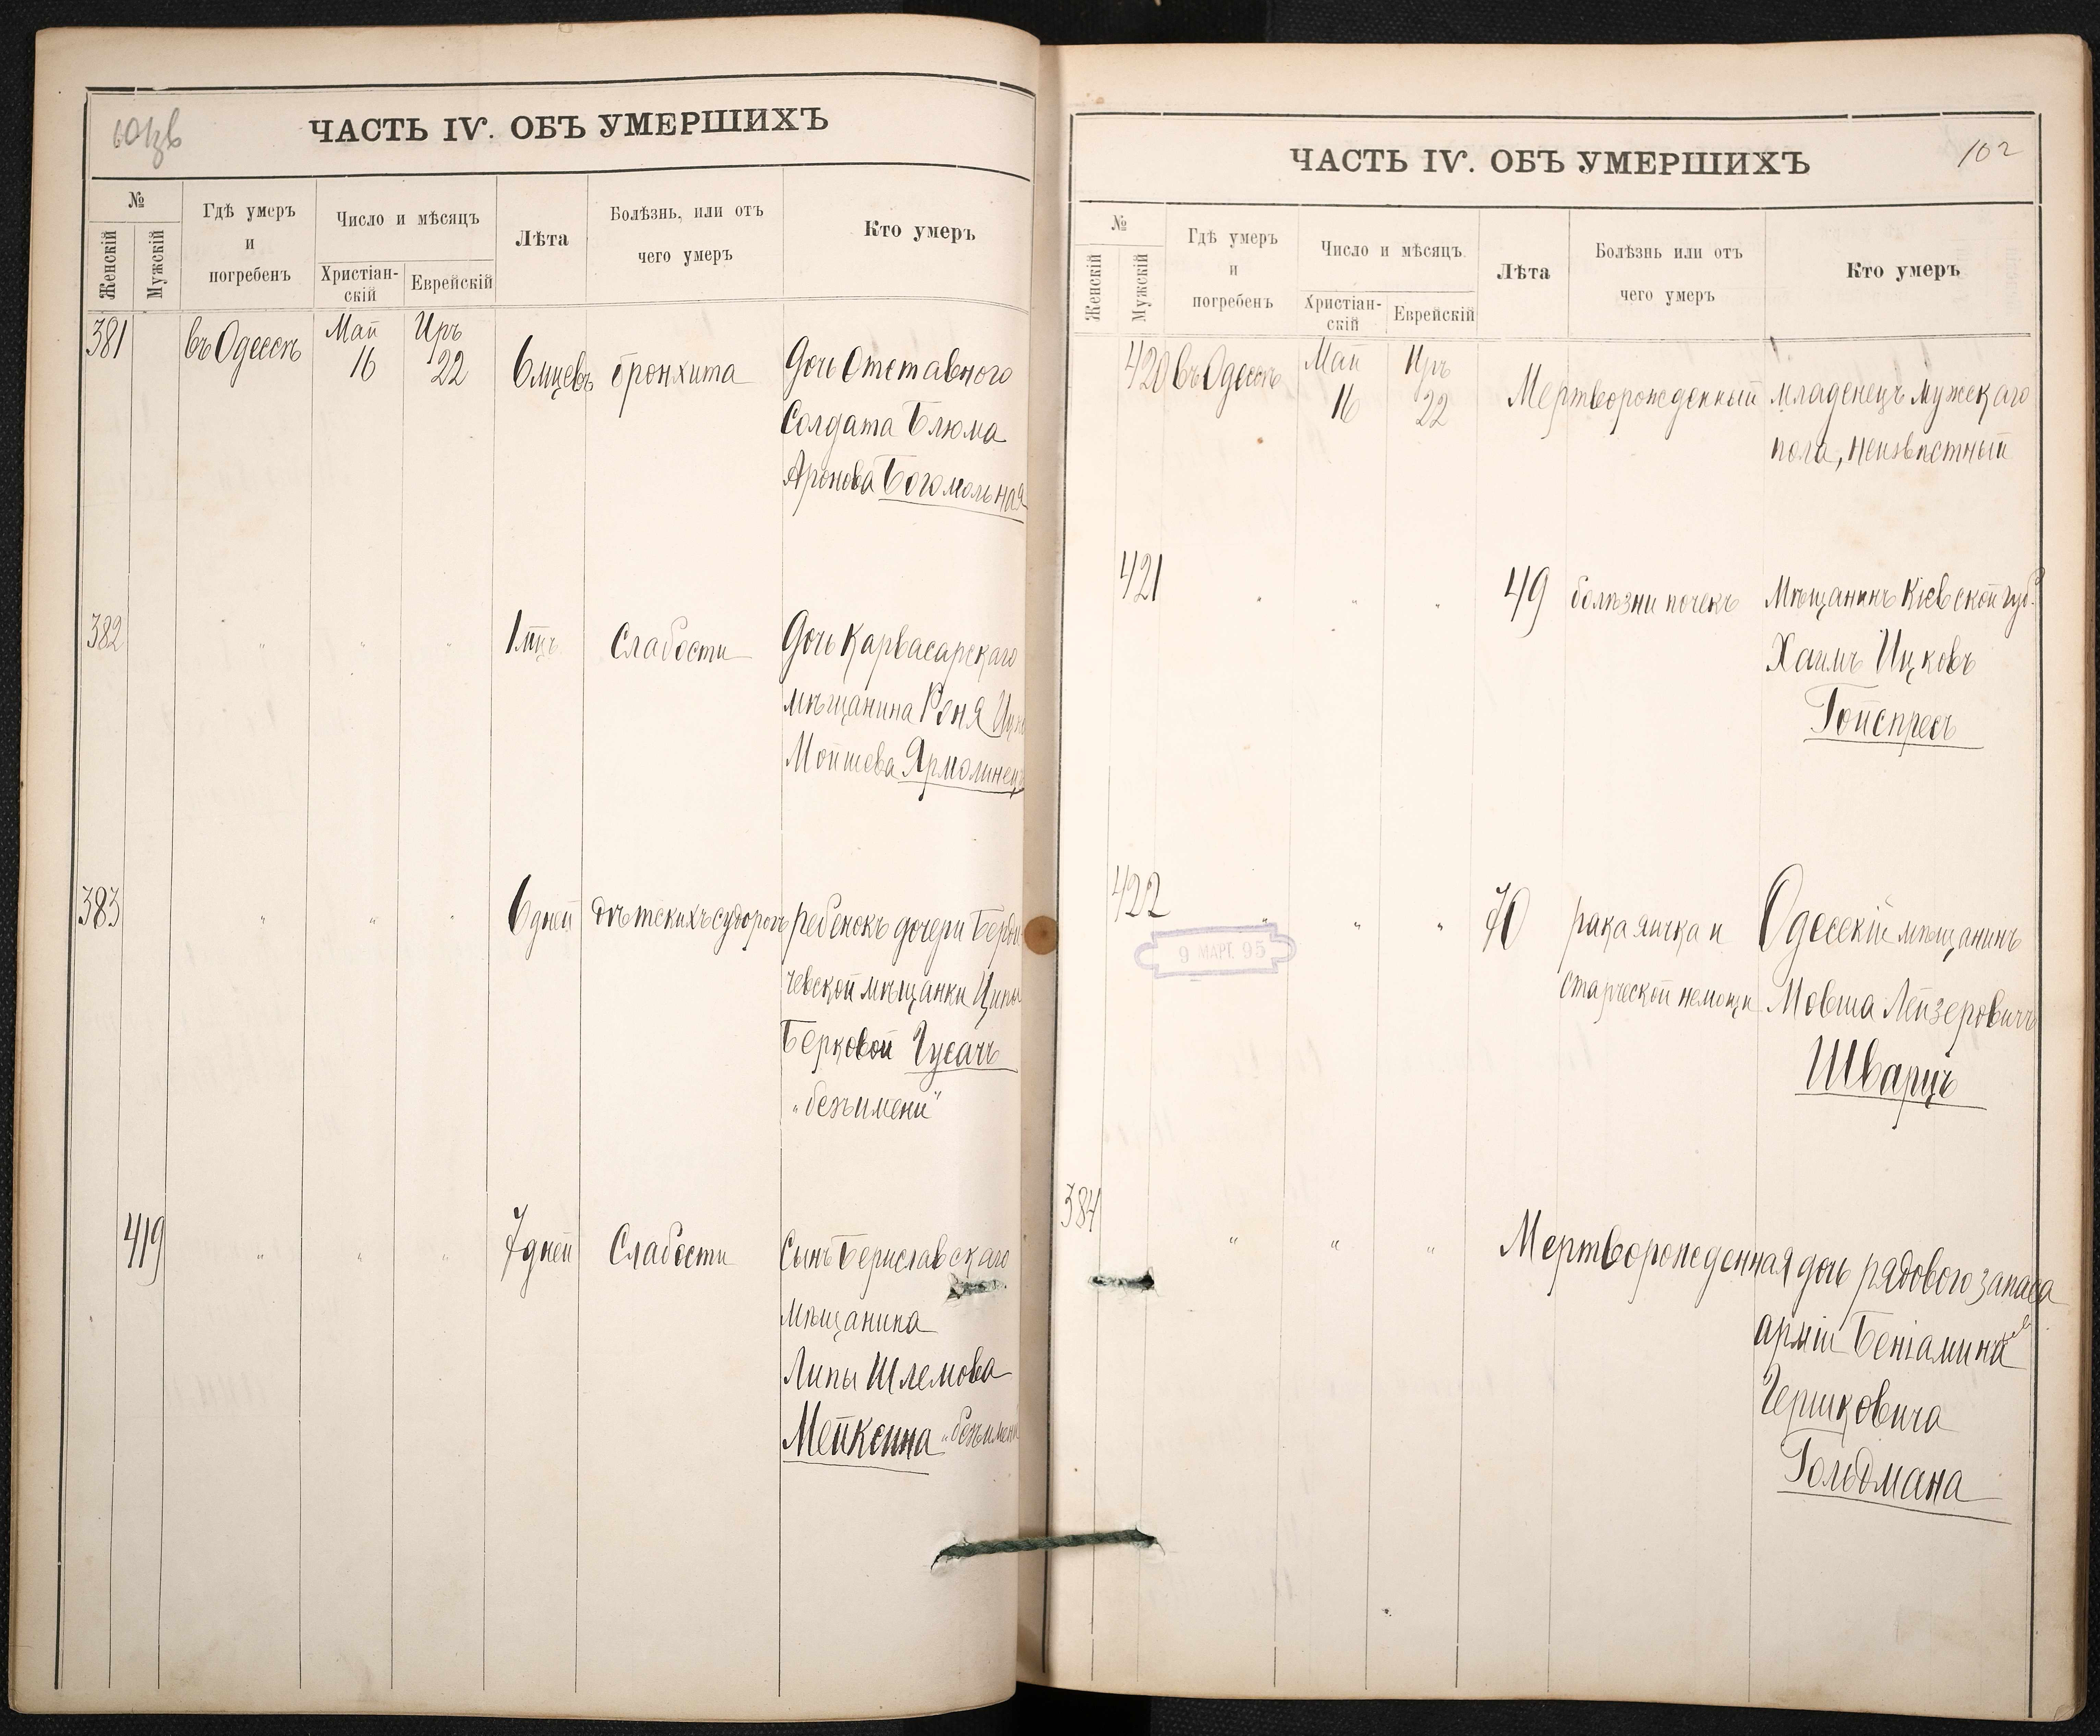 ЧАСТЬ IV. ОБЪ УМЕРШИХЪ
№
Женскій
Мужскій
Гдѣ умеръ
и
погребенъ
Число и мѣсяцъ
Христіан-
скій
Еврейскій
Лѣта
Болѣзнь, или отъ
чего умеръ
Кто умеръ
381 въ Одессѣ Май 16 Иръ 22 6 мцевъ бронхита Дочь Отставного
Солдата Блюма
Аронова Богомольная
382 " " " 1 мцъ Слабости Дочь Карвасарскаго
мѣщанина Роня
Мойшева Ярмолинецъ
383 " " " 6 дней дѣтскихъ судорогъ ребенокъ дочери Берди-
чевской мѣщанки Ципы
Берковой Гусачъ
"безъимени"
419 " " " 7 дней Слабости Сынъ Бериславскаго
мѣщанина
Липы Шлемова
Мейксина "безъимени
ЧАСТЬ IV. ОБЪ УМЕРШИХЪ
102
№
Женскій
Мужскій
Гдѣ умеръ
и
погребенъ
Число и мѣсяцъ.
Христіан-
скій
Еврейскій
Лѣта
Болѣзнь или отъ
чего умеръ
Кто умеръ
420 въ Одессѣ Май 16 Иръ 22 Мертворожденный младенецъ мужскаго
пола, неизвѣстный
421 " " " 49 болѣзни почекъ Мѣщанинъ Кіевской губ.
Хаимъ Ицковъ
Гойспресъ
422 " " " 70 рака яичка и Одесскій мѣщанинъ
9 МАРТ. 95
старческой немощи Мовша Лейзеровичъ
Шварцъ
384 " " " Мертворожденная дочь рядового запаса
арміи Беніамина
Гершковича
Гольдмана